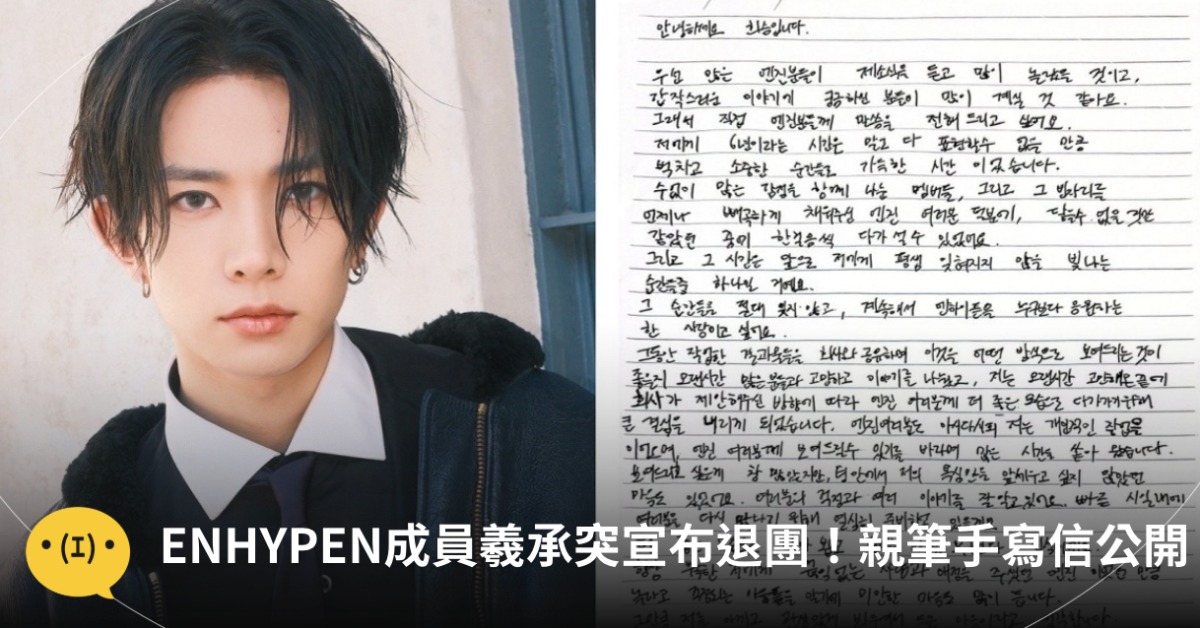 안녕하세요 희승입니다.
우선 많은 엔진분들이 제소식을 듣고 많이 놀랐을 것이고,
갑작스러운 이야기에 궁금하신 분들이 많이 계실 것 같아요.
그래서 직접 엔진분들께 말씀을 전해 드리고 싶어요.
저에게 6년이라는 시간은 말로 다 표현할수 없을 만큼
벅차고 소중한 순간들로 가득한 시간 이었습니다.
수없이 많은 감정을 함께 나눈 멤버들, 그리고 그 빈자리를
언제나 빼곡하게 채워주신 엔진 여러분 덕분에, 닿을수 없을 것만
같았던 꿈에 한걸음씩 다가 설 수 있었어요.
그리고 그 시간은 앞으로 저에게 평생 잊혀지지 않을 빛나는
순간들중 하나일 거예요.
그 순간들을 절대 잊지 않고, 계속해서 엔하이픈을 누구보다 응원하는
한 사람이고 싶어요.
그동안 작업한 결과물들을 회사와 공유하며 이것을 어떤 방식으로 보여드리는 것이
좋을지 오랜시간 많은분들과 고민하고 이야기를 나눴고, 저는 오랜시간 고민해온 끝에
회사가 제안해주신 방향에 따라 엔진 여러분께 더 좋은 모습으로 다가가기위해
큰 결심을 내리게 되었습니다. 엔진여러분도 아시다시피 저는 개인적인 작업을
이어오며, 엔진 여러분께 보여드릴수 있기를 바라며 많은 시간을 쏟아 왔습니다.
보여드리고 싶은게 참 많았지만, 팀 안에서 저의 욕심만을 앞세우고 싶지 않았던
마음도 있었어요. 여러분의 걱정과 여러 이야기를 잘 알고있어요. 빠른 시일내에
여러분을 다시 만나기 위해 열심히 준비하고
(ェ)
ENHYPEN成員羲承突宣布退團！親筆手寫信公開